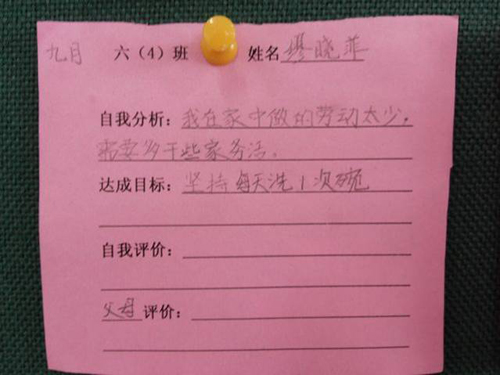 九月 六（4）班 姓名 缪晓菲
自我分析：我在家中做的劳动太少，
需要多干些家务活。
达成目标：坚持每天洗1次碗
自我评价：
父母评价：